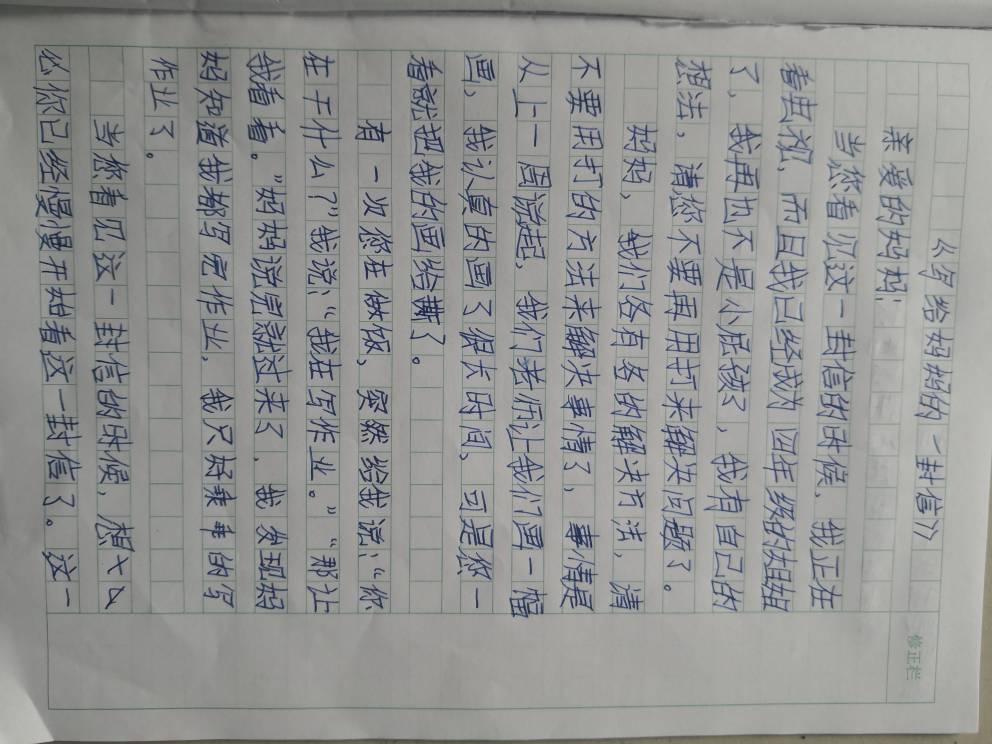 《写给妈妈的一封信》
亲爱的妈妈:
当您看见这一封信的时候，我正在
看思礼，而且我已经成为四年级的姐姐
了，我再也不是小孩了，我有自己的
想法，请您不要再用打来解决问题了。
妈妈，我们各有各的解决方法，请
不要用打的方法来解决事情了，事情是
从上一周说起，我们老师让我们画一幅
画，我认真的画了很长时间，可是您一
看就把我的画给撕了。
有一次您在做饭，突然给我说:“你
在干什么？”我说:“我在写作业。”“那让
我看看。”妈妈说完就过来了，我发现妈
妈知道我都写完作业，我只好乖乖的写
作业了。
当您看见这一封信的时候，想必
必你已经慢慢开始看这一封信了。这一
修正栏